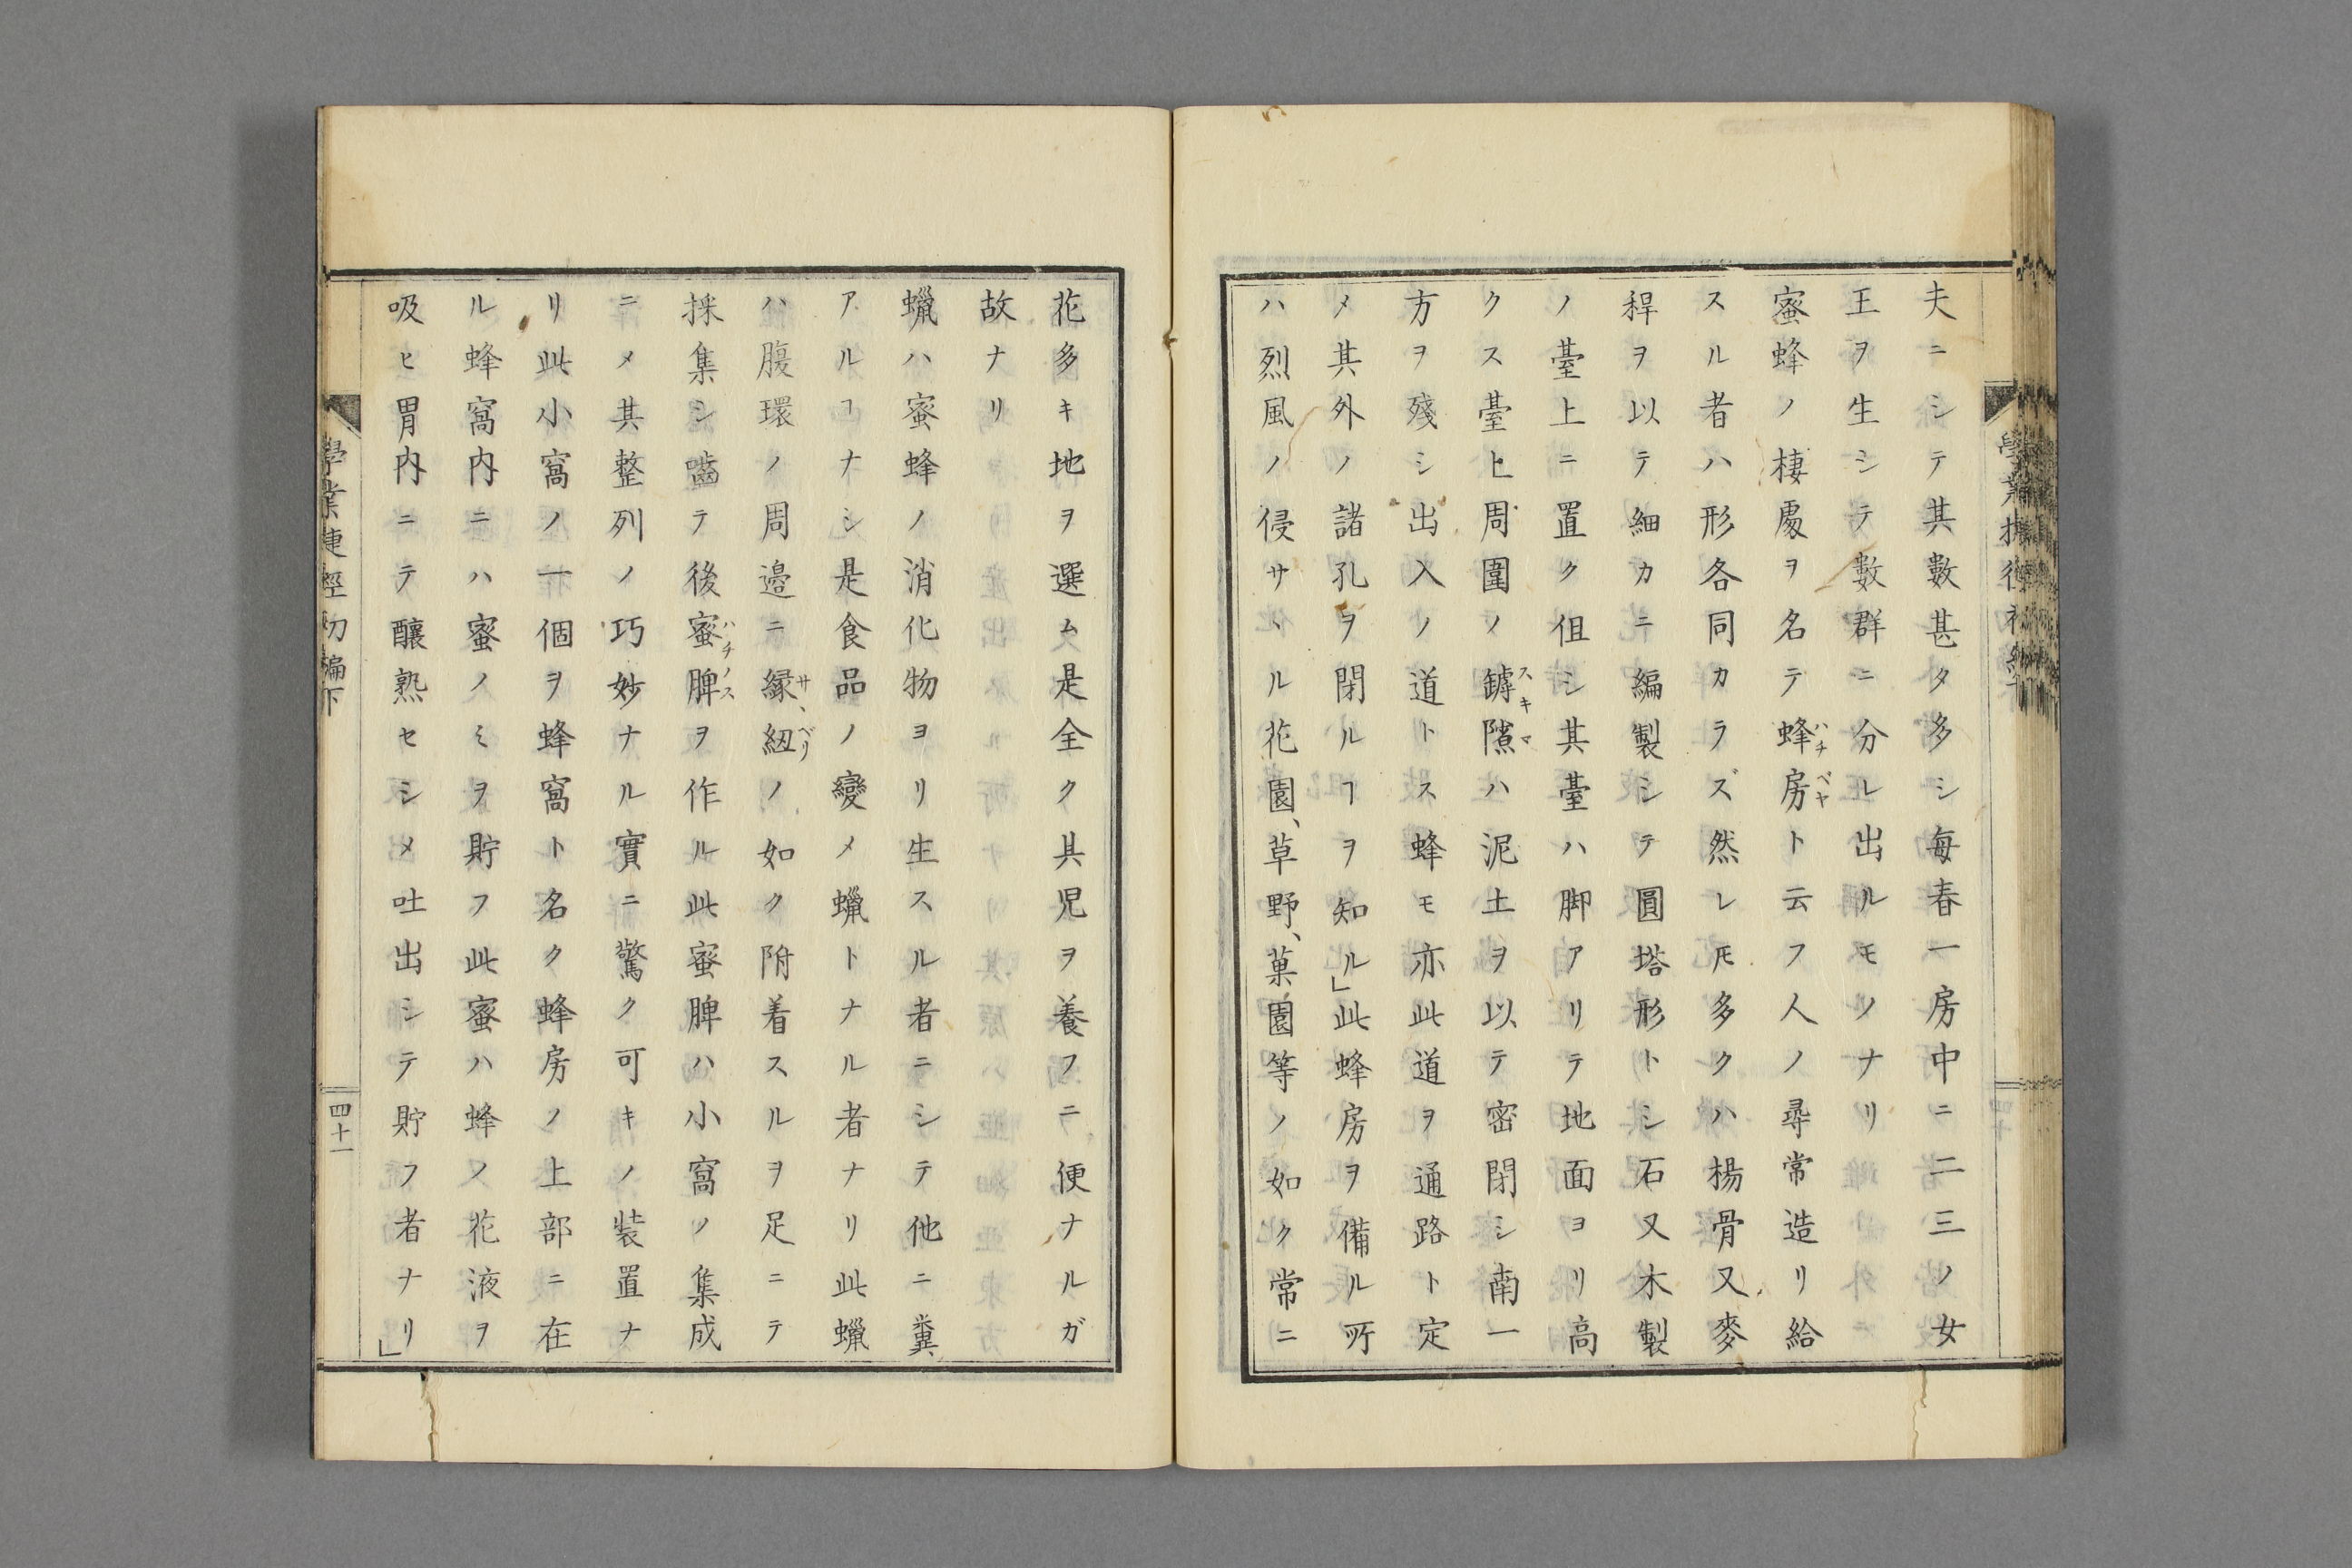 夫ニシテ其數甚タ多シ毎春一房中ニ二三ノ女
王ヲ生シテ數群ニ分レ出ルモノナリ
蜜蜂ノ棲處ヲ名テ蜂房ト云フ人ノ尋常造リ給
ハチベヤ
スル者ハ形各同カラズ然レ𪜈多クハ楊骨又麥
稈ヲ以テ細カニ編製シテ圓塔形トシ石又木製
ノ臺上ニ置ク但シ其臺ハ脚アリテ地面ヨリ高
クス臺ト周圍ノ罅隙ハ泥土ヲ以テ密閉シ南一
スキマ
方ヲ殘シ出入ノ道トス蜂モ亦此道ヲ通路ト定
メ其外ノ諸孔ヲ閉ルヿヲ知ル」此蜂房ヲ備ル所
ハ烈風ノ侵サヽル花園、草野、菓園等ノ如ク常ニ
花多キ地ヲ選ム是全ク其児ヲ養フニ便ナルガ
故ナリ
蠟ハ蜜蜂ノ消化物ヨリ生スル者ニシテ他ニ糞
アルヿナシ是食品ノ變メ蠟トナル者ナリ此蠟
ハ腹環ノ周邉ニ縁紐ノ如ク附着スルヲ足ニテ
サヽベリ
採集シ嚙テ後蜜脾ヲ作ル此蜜脾ハ小窩ノ集成
ハチノス
ニメ其整列ノ巧妙ナル實ニ驚ク可キノ装置ナ
リ此小窩ノ一個ヲ蜂窩ト名ク蜂房ノ上部ニ在
ル蜂窩内ニハ蜜ノミヲ貯フ此蜜ハ蜂ノ花液ヲ
吸ヒ胃内ニテ釀熟セシメ吐出シテ貯フ者ナリ」
四十一